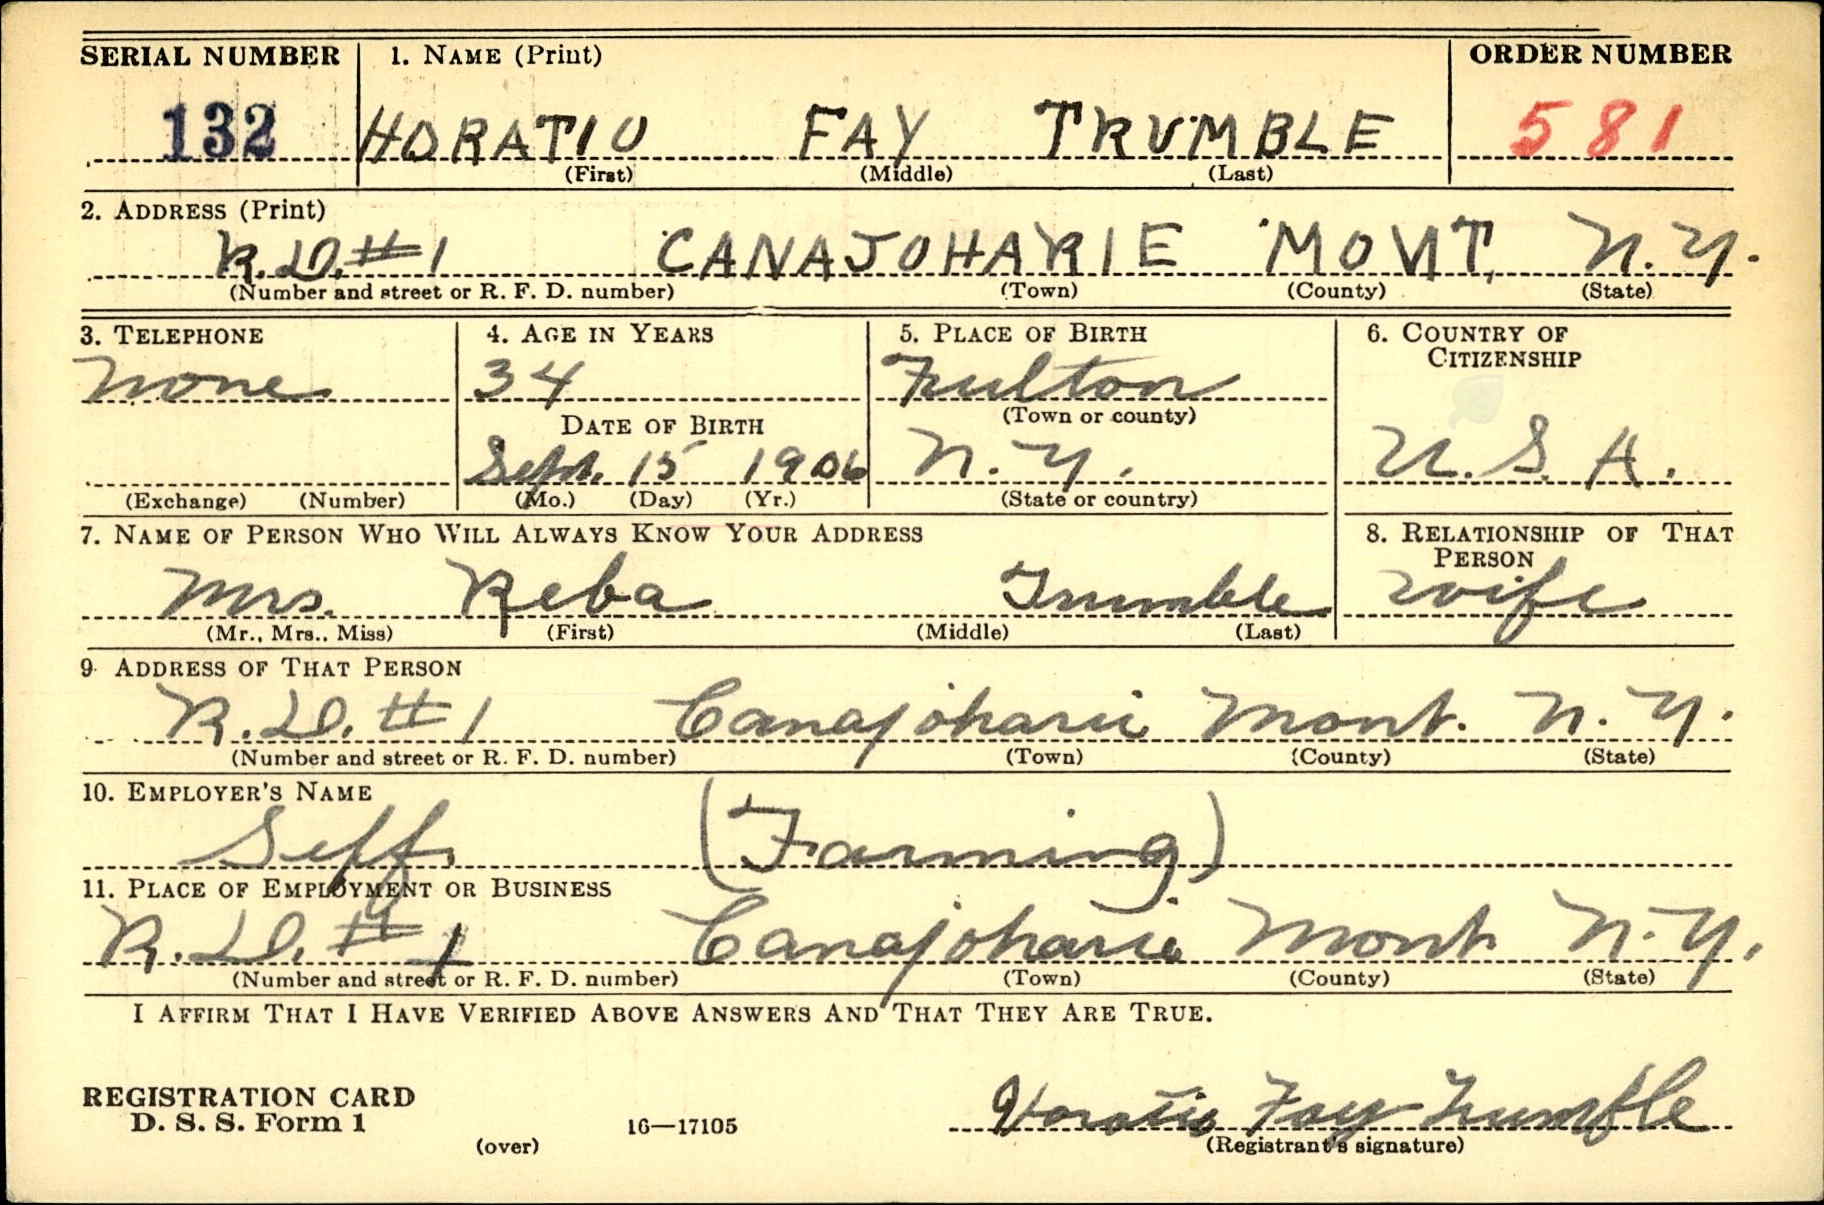 SERIAL NUMBER 1. NAME (Print) ORDER NUMBER
132 HORATIO FAY TRUMBLE 581
(First) (Middle) (Last)
2. ADDRESS (Print)
R.D.#1 CANAJOHARIE MONT, N.Y.
(Number and street or R. F. D. number) (Town) (County) (State)
3. TELEPHONE 4. AGE IN YEARS 5. PLACE OF BIRTH 6. COUNTRY OF CITIZENSHIP
None 34 Fulton
DATE OF BIRTH (Town or county)
Sept. 15 1906 N.Y. U.S.A.
(Exchange) (Number) (Mo.) (Day) (Yr.) (State or country)
7. NAME OF PERSON WHO WILL ALWAYS KNOW YOUR ADDRESS 8. RELATIONSHIP OF THAT PERSON
Mrs. Reba Trumble wife
(Mr., Mrs., Miss) (First) (Middle) (Last)
9. ADDRESS OF THAT PERSON
R.D.#1 Canajoharie Mont. N.Y.
(Number and street or R. F. D. number) (Town) (County) (State)
10. EMPLOYER'S NAME
Self (Farming)
11. PLACE OF EMPLOYMENT OR BUSINESS
R.D.#1 Canajoharie Mont N.Y.
(Number and street or R. F. D. number) (Town) (County) (State)
I AFFIRM THAT I HAVE VERIFIED ABOVE ANSWERS AND THAT THEY ARE TRUE.
REGISTRATION CARD
D. S. S. Form 1 16—17105 Horatio Fay Trumble
(over) (Registrant's signature)